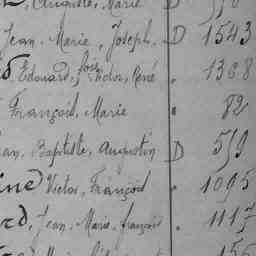 , Auguste, Marie D
Jean, Marie, Joseph. D 1543
d Edouard, fois Victor, René . 1308
François, Marie . 82
ean, Baptiste, Augustin D 559
ine Victor, François . 1095
rd, Jean, Marie, françois . 1117